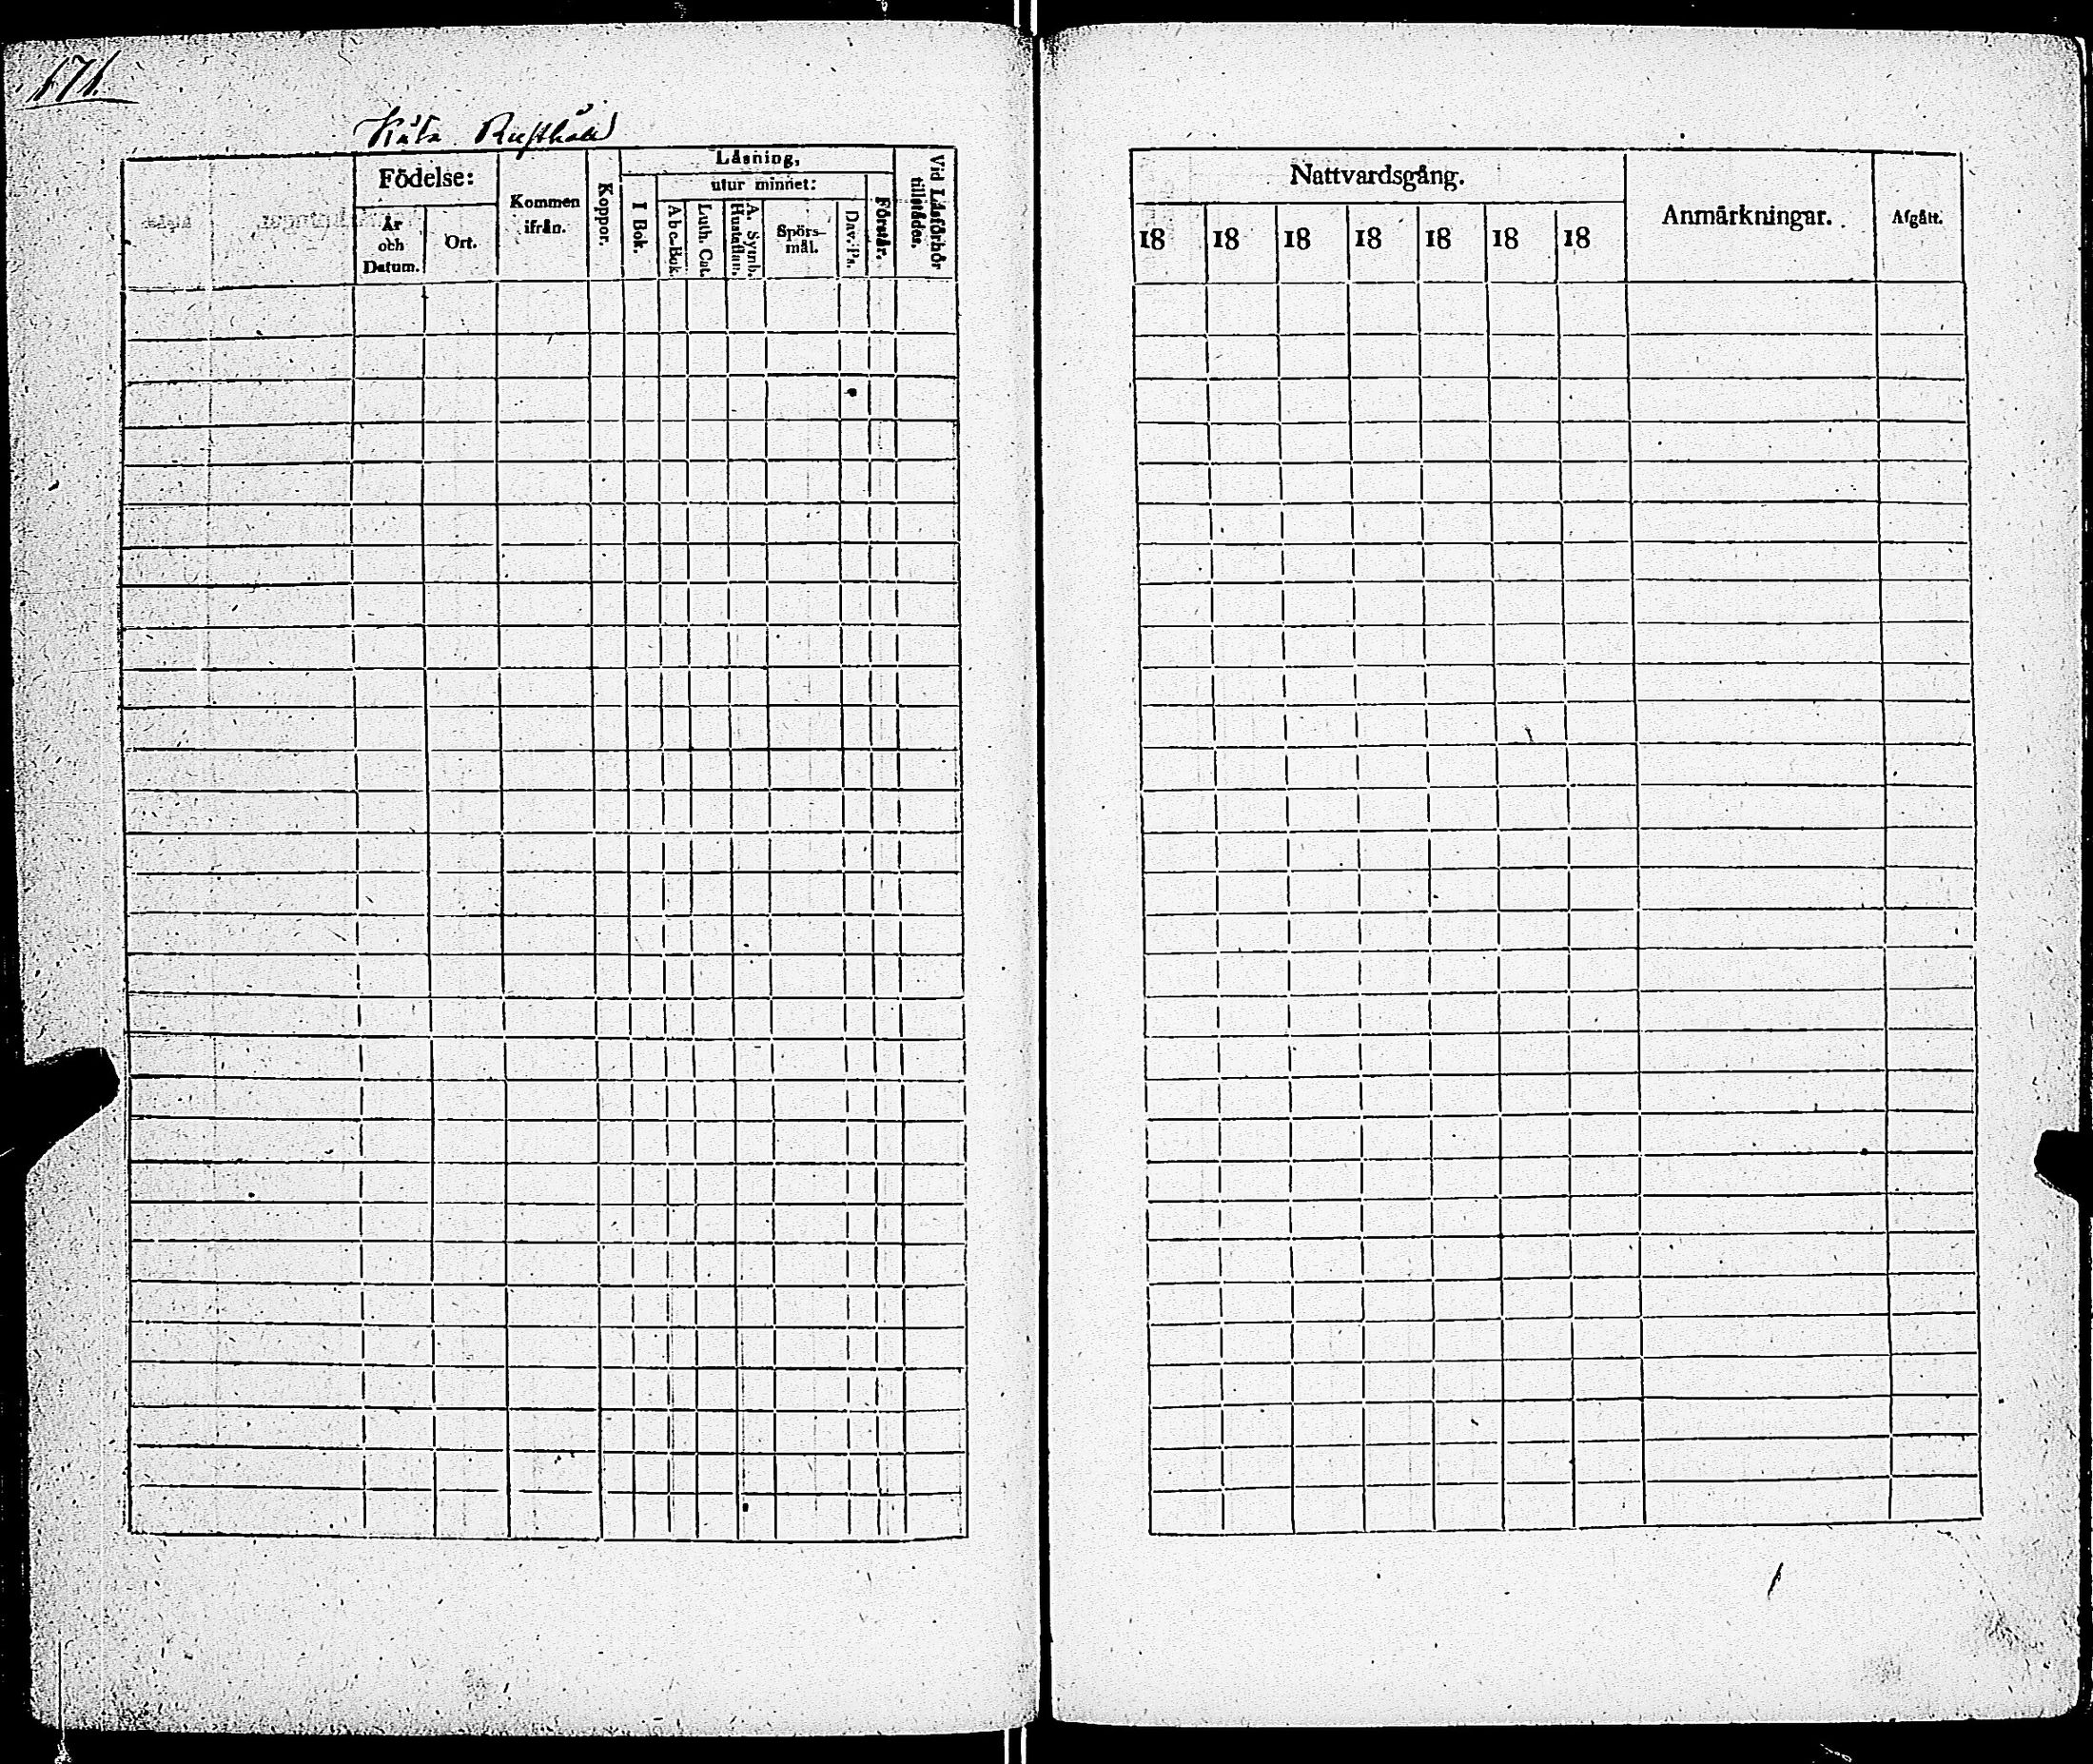 171.
Rusthåll
Födelse:
År
och
Datum.
Ort.
Kommen
ifrån.
Koppor.
Läsning,
I Bok.
utur minnet:
Abc-Bok.
Luth. Cat.
A. Symb.
Hustaflan.
Spörs-
mål.
Dav. Ps.
Förstår.
Vid Läsförhör
tillstädes.
Nattvardsgång.
18 18 18 18 18 18 18
Anmärkningar.
Afgått.